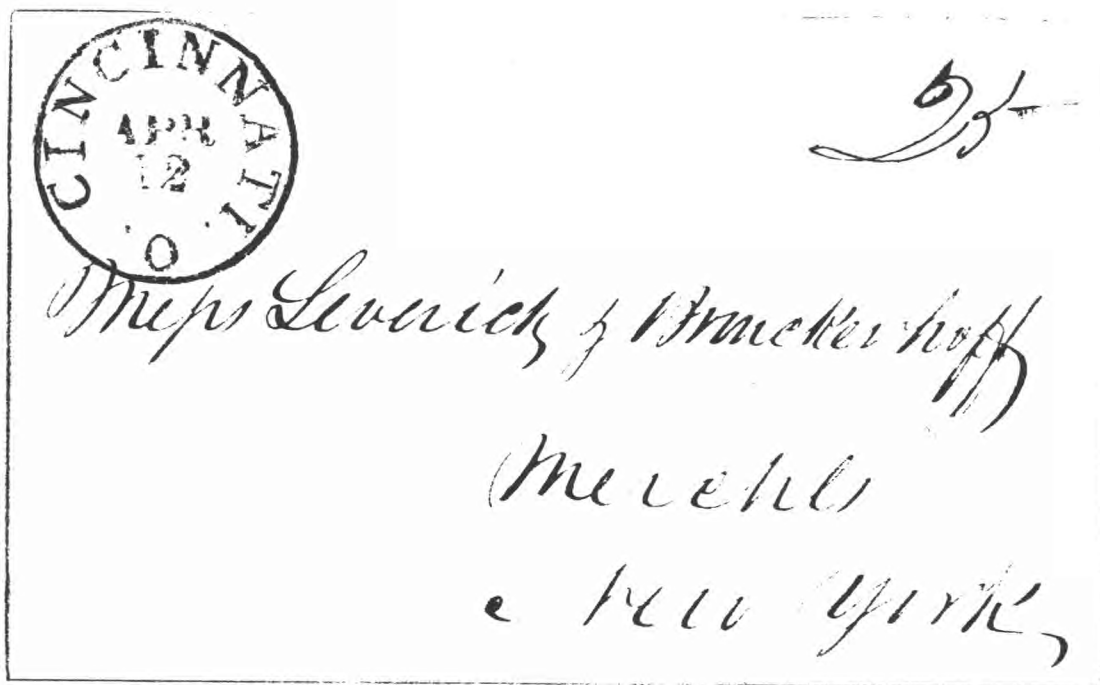 CINCINNATI. O
APR
12
25
Messrs Leverich & Brinckerhoff
Merchts
New York,